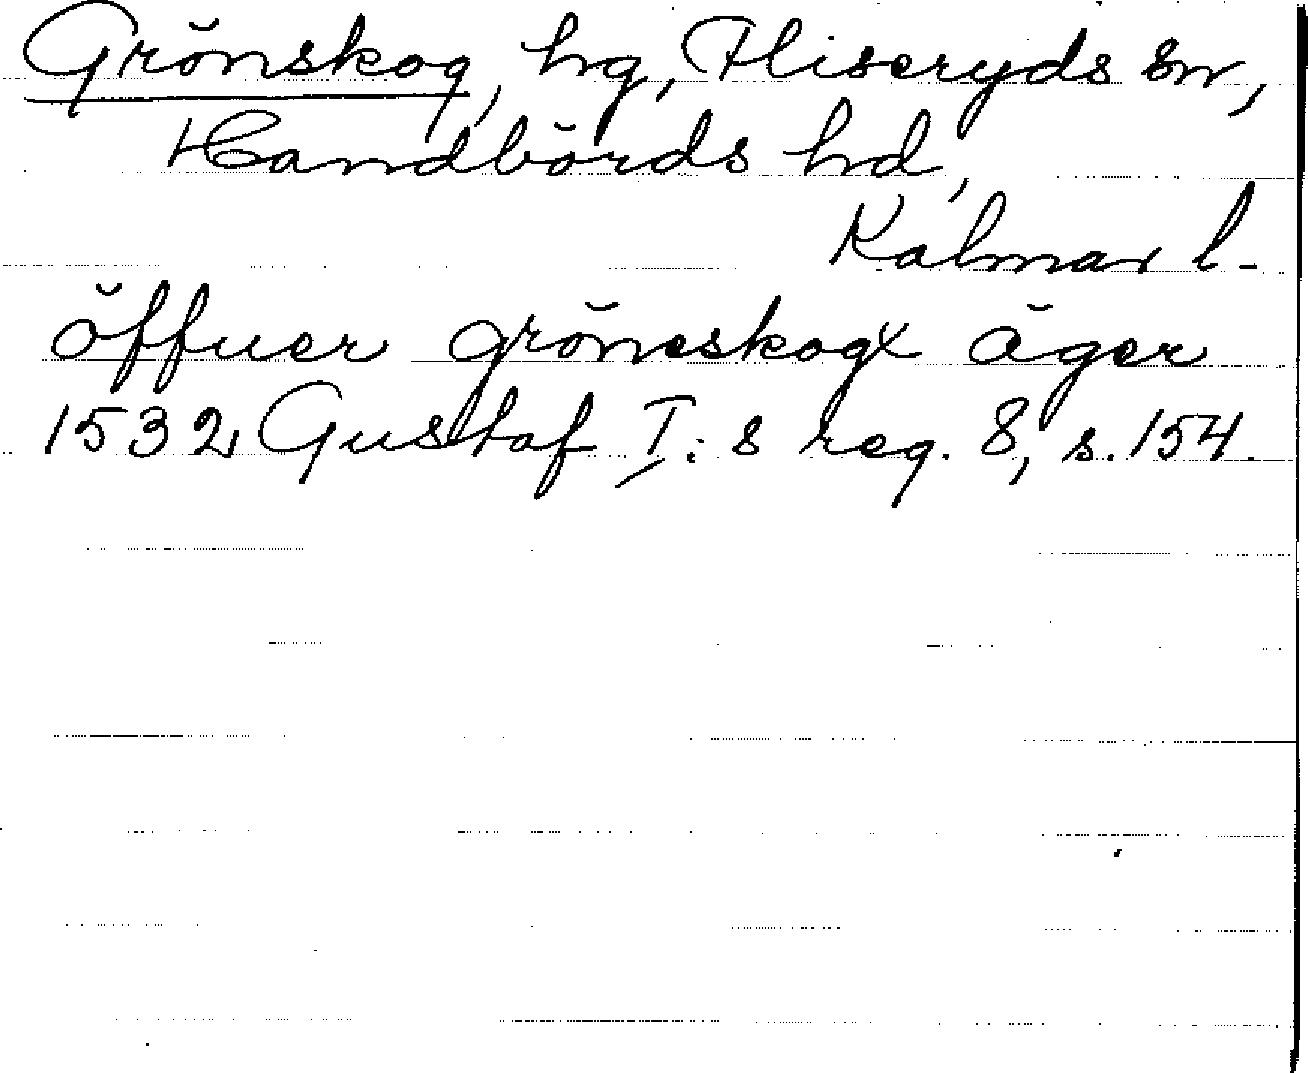 Grönskog, hg, Fliseryds sn,
Handbörds hd,
Kalmar l-
öffuer gröneskogx äger
1532 Gustaf I:s reg. 8, s. 154.